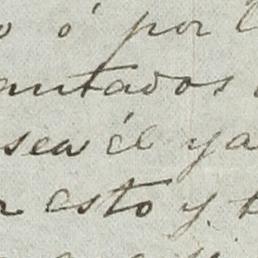 ó por
antados
sea él ya
esto y